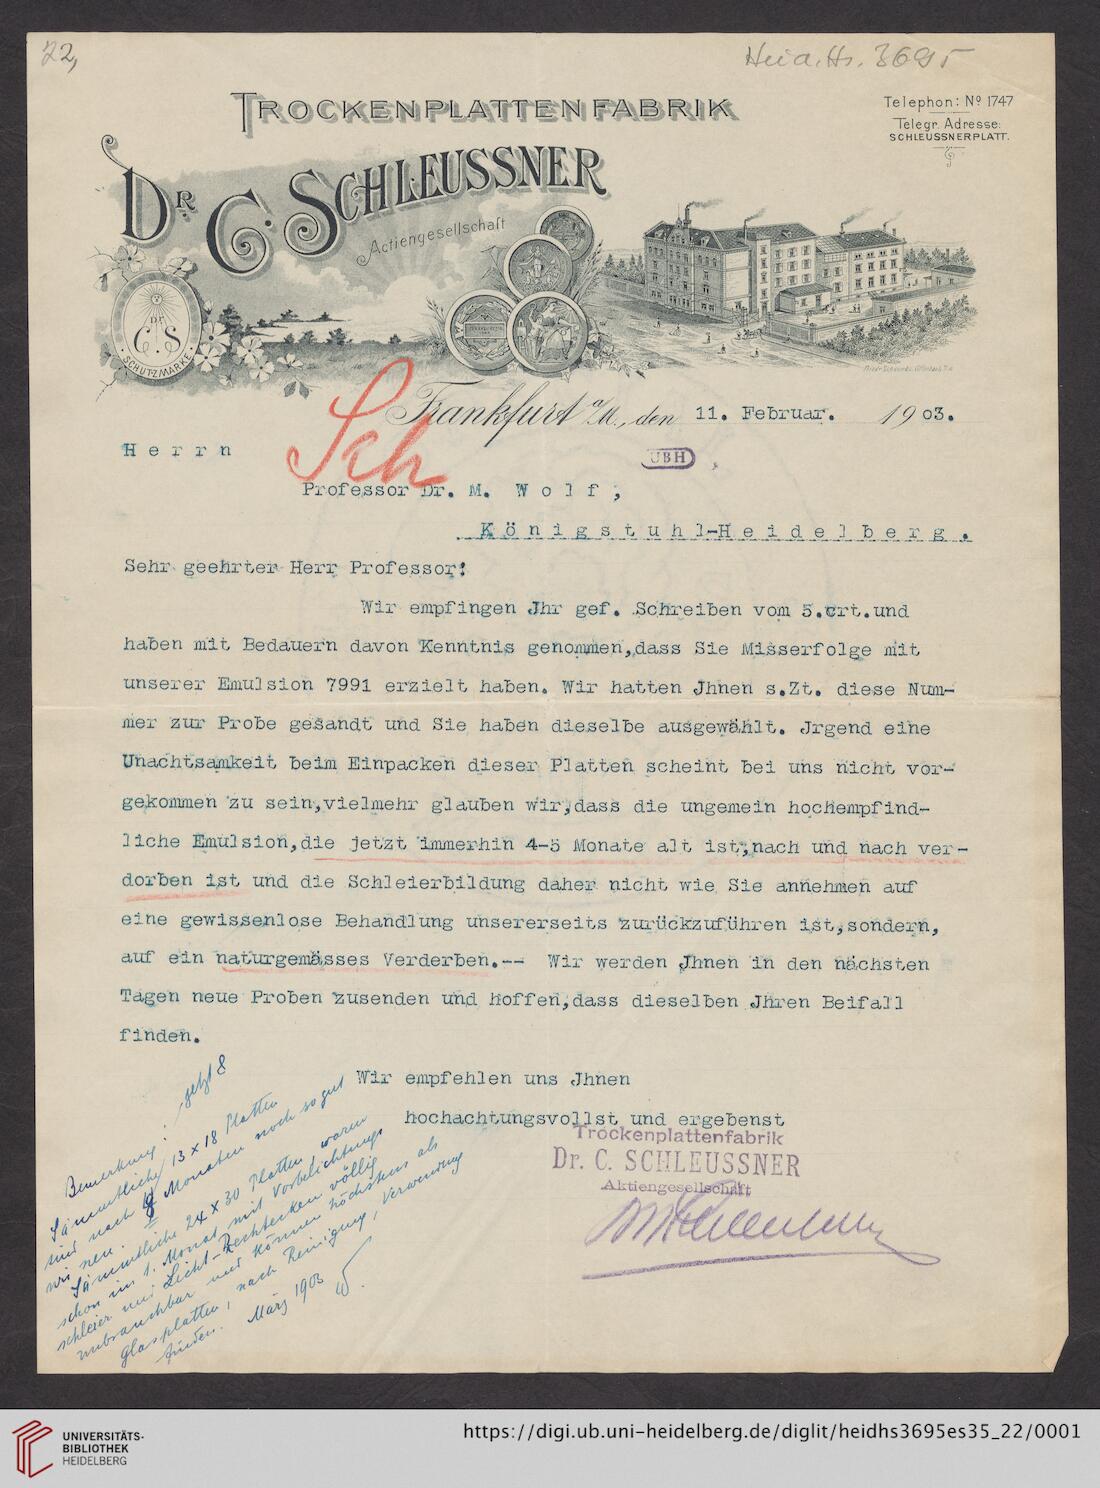 22,
Heid. Hs. 3695
TROCKENPLATTENFABRIK
Telephon: Nº 1747
Telegr. Adresse:
SCHLEUSSNERPLATT.
DR. C. SCHLEUSSNER
Actiengesellschaft
Dr.
C. S
SCHUTZMARKE
Frankfurt a/M., den 11. Februar. 1903.
Sch
Herrn
UBH
Professor Dr. M. Wolf,
Königstuhl-Heidelberg.
Sehr geehrter Herr Professor!
Wir empfingen Jhr gef. Schreiben vom 5.crt.und
haben mit Bedauern davon Kenntnis genommen,dass Sie Misserfolge mit
unserer Emulsion 7991 erzielt haben. Wir hatten Jhnen s.Zt. diese Num-
mer zur Probe gesandt und Sie haben dieselbe ausgewählt. Jrgend eine
Unachtsamkeit beim Einpacken dieser Platten scheint bei uns nicht vor-
gekommen zu sein,vielmehr glauben wir,dass die ungemein hochempfind-
liche Emulsion,die jetzt immerhin 4-5 Monate alt ist,nach und nach ver-
dorben ist und die Schleierbildung daher nicht wie Sie annehmen auf
eine gewissenlose Behandlung unsererseits zurückzuführen ist,sondern,
auf ein naturgemässes Verderben.-- Wir werden Jhnen in den nächsten
Tagen neue Proben zusenden und hoffen,dass dieselben Jhren Beifall
finden.
Wir empfehlen uns Jhnen
hochachtungsvollst und ergebenst
Trockenplattenfabrik
Dr. C. SCHLEUSSNER
Aktiengesellschaft
Bemerkung: jetzt 8
Sämmtliche 13 x 18 Platten
sind nach Monaten noch so gut
wie neu.
Sämmtliche 24 x 30 Platten waren
schon im 1. Monat mit Vorbelichtungs
schleier und Licht-Rechtecken völlig
unbrauchbar und können höchstens als
Glasplatten, nach Reinigung, Verwendung
finden. März 1903 W.
UNIVERSITÄTS-
BIBLIOTHEK
HEIDELBERG
https://digi.ub.uni-heidelberg.de/diglit/heidhs3695es35_22/0001